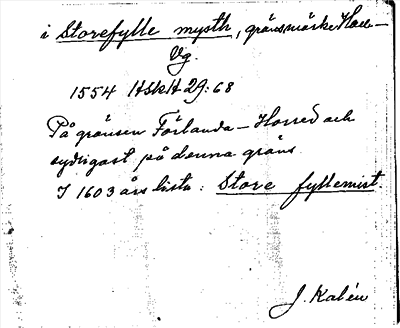 i Storefylle mysth, gränsmärke Hall–
Vg.
1554 HSkH 29:68
På gränsen Förlanda – Horred och
sydligast på denna gräns.
I 1603 års lista: Store fyllemist.
J. Kalén